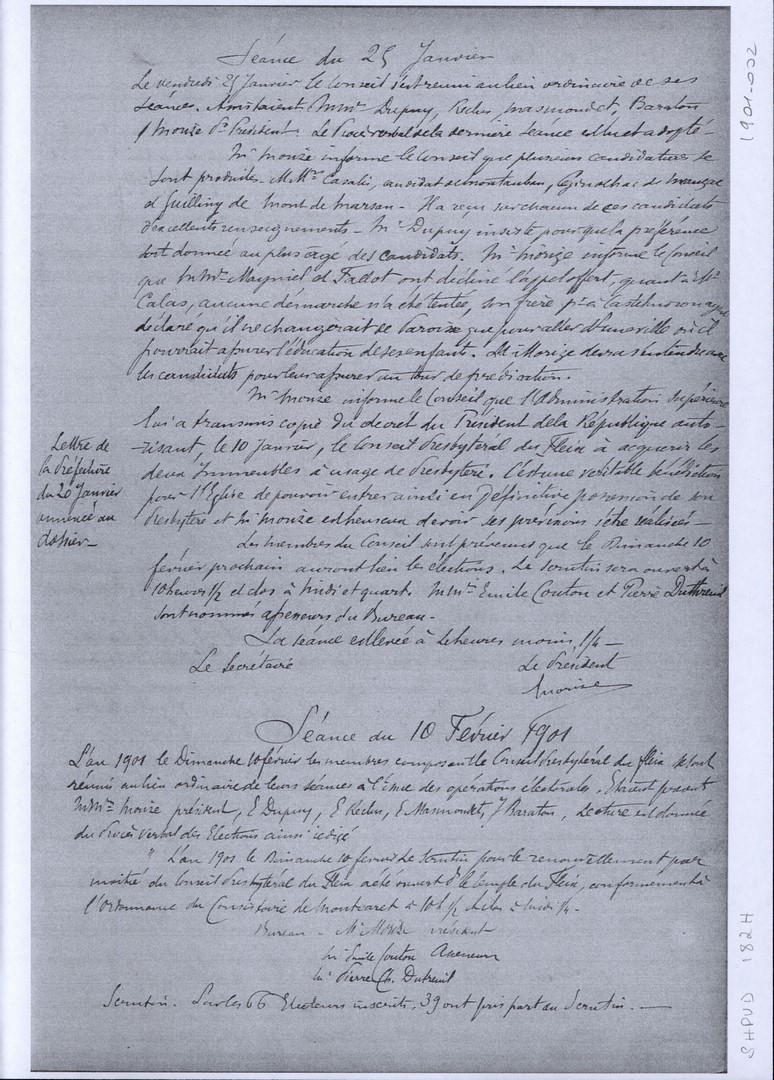 Séance du 25 Janvier
Le vendredi 25 Janvier le Conseil s'est réuni au lieu ordinaire de ses
séances. Assistaient MMrs Dupuy, Reclus, Masmondet, Baraton
Morize Pt Président. Le Procès verbal de la dernière séance est lu et adopté -
Mr Morize informe le Conseil que plusieurs candidatures se
sont produites - MMrs Casalis, candidat de Montauban, Ginolhac de
et Guilliny de Mont de Marsan - Il a reçu sur chacun de ces candidats
d'excellents renseignements - Mr Dupuy insiste pour que la préférence
soit donnée au plus âgé des candidats. Mr Morize informe le Conseil
que MMrs Mayniel et Fallot ont décliné l'appel offert, quant à Mr
Calas, aucune démarche n'a été tentée, son frère pr à Castelmoron ayant
déclaré qu'il ne changerait de Paroisse que pour aller à Luneville où il
pourrait assurer l'éducation de ses enfants. Mr Morize devra s'entendre avec
les candidats pour leur assurer un tour de prédication.
Mr Morize informe le Conseil que l'Administration supérieure
lui a transmis copie du décret du Président de la République auto-
risant, le 10 Janvier, le Conseil Presbytéral du Fleix à acquérir les
deux Immeubles à usage de Presbytère. C'est une véritable bénédiction
pour l'Eglise de pouvoir entrer ainsi en définitive possession de son
Presbytère et Mr Morize est heureux de voir ses prévisions s'être réalisées -
Lettre de
la Préfecture
du 20 Janvier
annexée au
dossier -
Les membres du Conseil sont prévenus que le Dimanche 10
février prochain auront lieu les élections. Le Scrutin sera ouvert à
10 heures 1/2 et clos à Midi et quart. MMrs Emile Couton et Pierre Dutreuil
sont nommés assesseurs du Bureau -
La séance est levée à heures moins 1/4 -
Le Secrétaire Le Président
Morize
Séance du 10 Février 1901
L'an 1901 le Dimanche 10 février les membres composant le Conseil Presbytéral du Fleix se sont
réunis au lieu ordinaire de leurs séances à l'issue des opérations électorales. Etaient présents
MMrs Morize président, E Dupuy, E Reclus, E Masmondet, J Baraton, Lecture est donnée
du Procès verbal des Elections ainsi rédigé
" L'an 1901 le Dimanche 10 février Le Scrutin pour le renouvellement par
moitié du Conseil Presbytéral du Fleix a été ouvert ds le temple du Fleix, conformément à
l'Ordonnance du Consistoire de Montcaret à 10h 1/2 et clos à midi 1/4 -
Bureau - Mr Morize président
Mr Emile Couton Assesseur
Mr Pierre Ch. Dutreuil
Scrutin. Sur les 66 Electeurs inscrits, 39 ont pris part au Scrutin. -
1901-002
SHPVD 182H